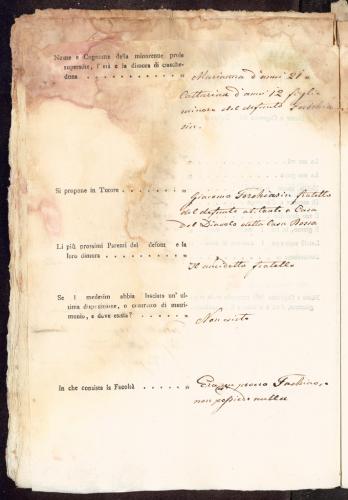 Nome e Cognome della minorenne prole
superstite, l'età e la dimora di ciasche-
duna . . . . . . . . . . . „
Marianna d'anni 21 e
Catterina d'anni 12 figlie
minore del defunto
sin.
Si propone in Tutore . . . . . . „
Giacomo Torchiasin fratello
del defunto abitante a Casa
del Diavolo detta Casa Rossa
Li più prossimi Parenti del defont e la
loro dimora . . . . . . „
Il sucidetto fratello
Se i medesim abbia lasciata un' ul-
tima disposizione, o contratto di matri-
monio, e dove esista? . . . . . „
Non esiste
In che consista la Facoltà . . . . . . „
Era un povero Fachino, e
non possiede nulla